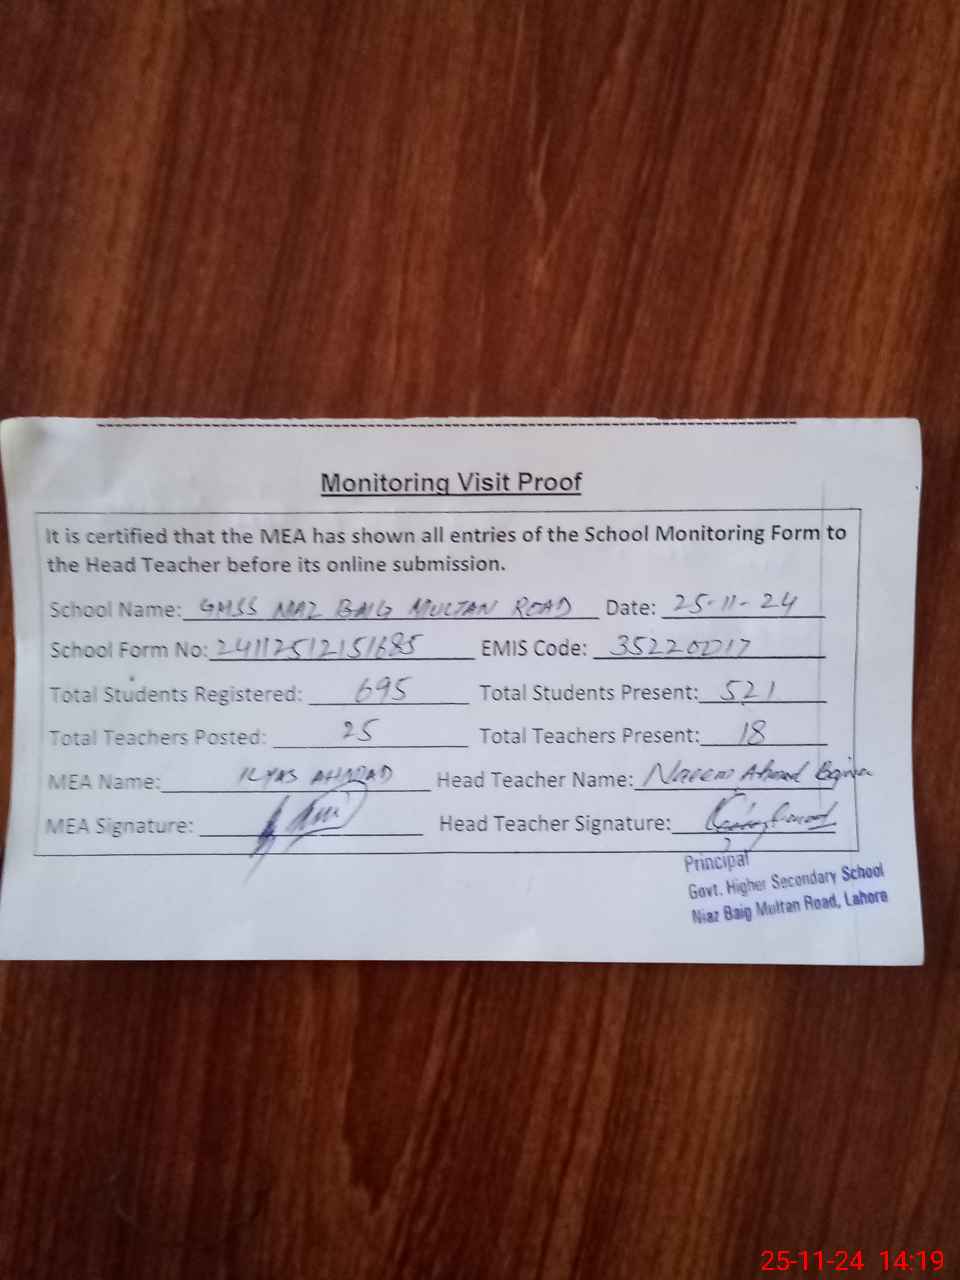 Monitoring Visit Proof
It is certified that the MEA has shown all entries of the School Monitoring Form to
the Head Teacher before its online submission.
School Name: GHSS NIAZ BAIG MULTAN ROAD Date: 25-11-24
School Form No: 24112512151685 EMIS Code: 35220017
Total Students Registered: 695 Total Students Present: 521
Total Teachers Posted: 25 Total Teachers Present: 18
MEA Name: ILYAS AHMAD Head Teacher Name: Naeem Ahmad
MEA Signature: Head Teacher Signature:
Principal
Govt. Higher Secondary School
Niaz Baig Multan Road, Lahore
25-11-24 14:19